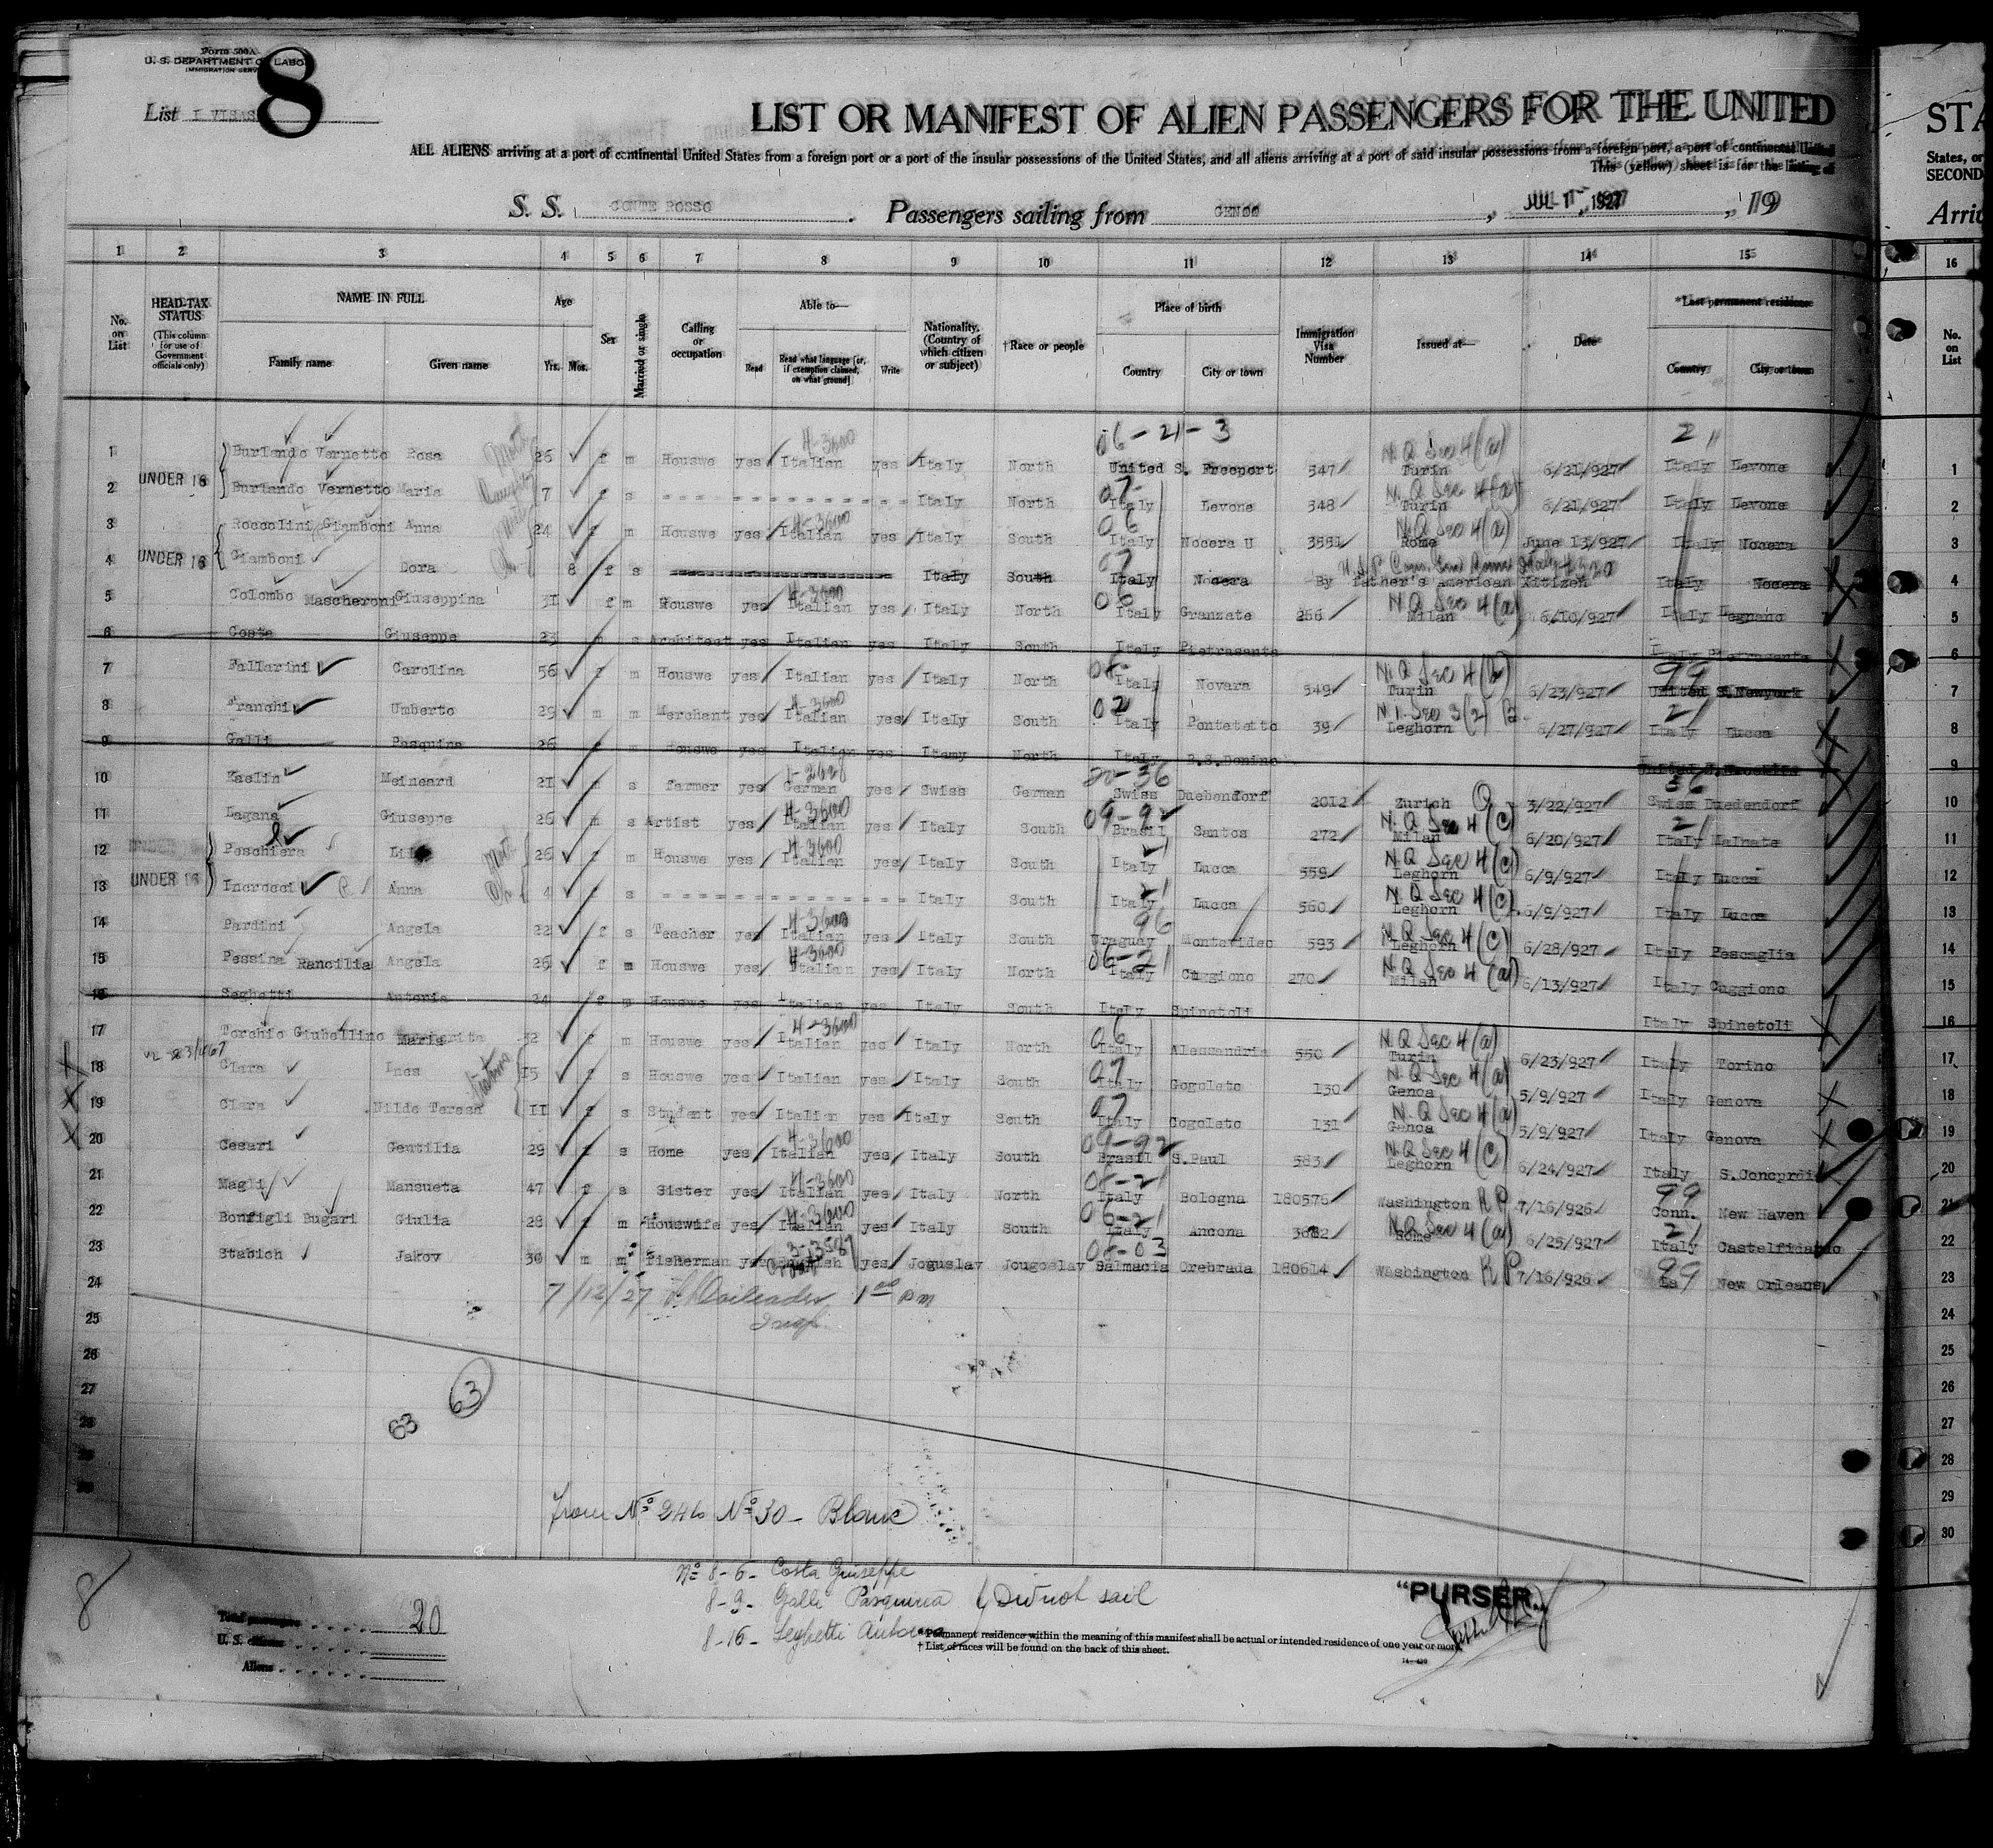 Form 500A
U. S. DEPARTMENT OF LABOR
IMMIGRATION SERVICE
8
List I VISAS
LIST OR MANIFEST OF ALIEN PASSENGERS FOR THE UNITED
STA
ALL ALIENS arriving at a port of continental United States from a foreign port or a port of the insular possessions of the United States, and all aliens arriving at a port of said insular possessions from a foreign port, a port of continental United
States, or
This (yellow) sheet is for the listing of
SECOND
S. S. CONTE ROSSO . Passengers sailing from GENOO , JUL 1 1927 , 19
Arri
1 2 3 4 5 6 7 8 9 10 11 12 13 14 15 16
No. on List
HEAD-TAX STATUS (This column for use of Government officials only)
NAME IN FULL Family name Given name
Age Yrs. Mos.
Sex
Married or single
Calling or occupation
Able to— Read Read what language [or, if exemption claimed, on what ground] Write
Nationality. (Country of which citizen or subject)
†Race or people
Place of birth Country City or town
Immigration Visa Number
Issued at—
Date
*Last permanent residence Country City or town
No. on List
06-21-3
1 Burlando Vernetto Rosa 26 f m Houswe yes 4-3600 Italian yes Italy North United S. Freeport 547 N.Q Sec 4(a) Turin 6/21/927 21 Italy Levone 1
2 UNDER 16 Burlando Vernetto Maria 7 f s Italy North 07 Italy Levone 348 N.Q Sec 4(a) Turin 6/21/927 Italy Levone 2
3 Roccolini Giamboni Anna 24 f m Houswe yes 4-3600 Italian yes Italy South 06 Italy Nocera U 3551 N.Q Sec 4(a) Rome June 13/927 Italy Nocera 3
4 UNDER 16 Giamboni Dora 8 f s Italy South 07 Italy Nocera By father's american Xitizen Italy Nocera 4
5 Colombo Mascheroni Giuseppina 31 f m Houswe yes 4-3600 Italian yes Italy North 06 Italy Granzate 266 N.Q Sec 4(a) Milan 6/10/927 Italy Legnano 5
6 Costa Giuseppe 23 m s Architect yes Italian yes Italy South Italy Pietrasanta Italy Pietrasanta 6
7 Fallarini Carolina 56 f m Houswe yes Italian yes Italy North 08 Italy Novara 549 N.Q Sec 4(b) Turin 6/23/927 99 United S. Newyork 7
8 Franchi Umberto 29 m m Merchant yes 4-3600 Italian yes Italy South 02 Italy Pontetetto 39 Leghorn 6/27/927 21 Italy Lucca 8
9 Galli Pasquina 26 f m Houswe yes Italian yes Itamy North Italy B.S.Donino 9
10 Kaelin Meinrard 21 m s farmer yes German yes Swiss German 20-36 Swiss Duebendorf 2012 Zurich Q 3/22/927 36 Swiss Duedendorf 10
11 Lagana Giuseppe 26 m s Artist yes 4-3600 Italian yes Italy South 09-92 Brasil Santos 272 N.Q Sec 4(c) Milan 6/20/927 21 Italy Malnate 11
12 Peschiera 26 f m Houswe yes 4-3600 Italian yes Italy South 21 Italy Lucca 559 N.Q Sec 4(c) Leghorn 6/9/927 Italy Lucca 12
13 UNDER 16 Incrocci Anna 4 f s Italy South 21 Italy Lucca 560 N.Q Sec 4(c) Leghorn 6/9/927 Italy Lucca 13
14 Pardini Angela 22 f s Teacher yes 4-3600 Italian yes Italy South 96 Uraguay Montevideo 593 N.Q Sec 4(c) Leghorn 6/28/927 Italy Pescaglia 14
15 Pessina Rancilia Angela 26 f m Houswe yes 4-3600 Italian yes Italy North 06-21 Italy Cuggiono 270 N.Q Sec 4(a) Milan 6/13/927 Italy Cuggiono 15
16 Seghetti Antonia 24 f m Houswe yes Italian yes Italy South Italy Spinetoli Italy Spinetoli 16
17 Torchio Giubellino Maria 32 f m Houswe yes 4-3600 Italian yes Italy North 06 Italy Alessandria 550 N.Q Sec 4(a) Turin 6/23/927 Italy Torino 17
18 Clara Ines 15 f s Houswe yes Italian yes Italy South 07 Italy Cogoleto 130 N.Q Sec 4(a) Genoa 5/9/927 Italy Genova 18
19 Clara Nilde Teresa 11 f s Student yes Italian yes Italy South 07 Italy Cogoleto 131 N.Q Sec 4(a) Genoa 5/9/927 Italy Genova 19
20 Cesari Gentilia 29 f s Home yes 4-3600 Italian yes Italy South 09-92 Brasil S.Paul 583 N.Q Sec 4(c) Leghorn 6/24/927 Italy S.Concordi 20
21 Magli Mansueta 47 f s Sister yes 4-3600 Italian yes Italy North 08-21 Italy Bologna 180576 Washington R P 7/16/926 99 Conn. New Haven 21
22 Bonfigli Bugari Giulia 28 f m Houswife yes 4-3600 Italian yes Italy South 06-21 Italy Ancona 3682 N.Q Sec 4(a) Rome 6/25/927 21 Italy Castelfidardo 22
23 Stabich Jakov 30 m m Fisherman yes yes Joguslav Jougoslav 08-03 Dalmacia Orebrada 180614 Washington R P 7/16/926 99 La New Orleans 23
24 7/12/27 1 00 pm 24
Insp.
25 25
26 26
27 27
28 28
29 29
30 30
63
63
from Nº 24 to Nº 30 - Blanc
8
Nº 8-6- Costa Giuseppe
8-9- Galli Pasquina } Did not sail
8-16- Seghetti Antonia
"PURSER"
Total passengers 20
U. S. citizens
Aliens
*Permanent residence within the meaning of this manifest shall be actual or intended residence of one year or more.
†List of races will be found on the back of this sheet.
14-430